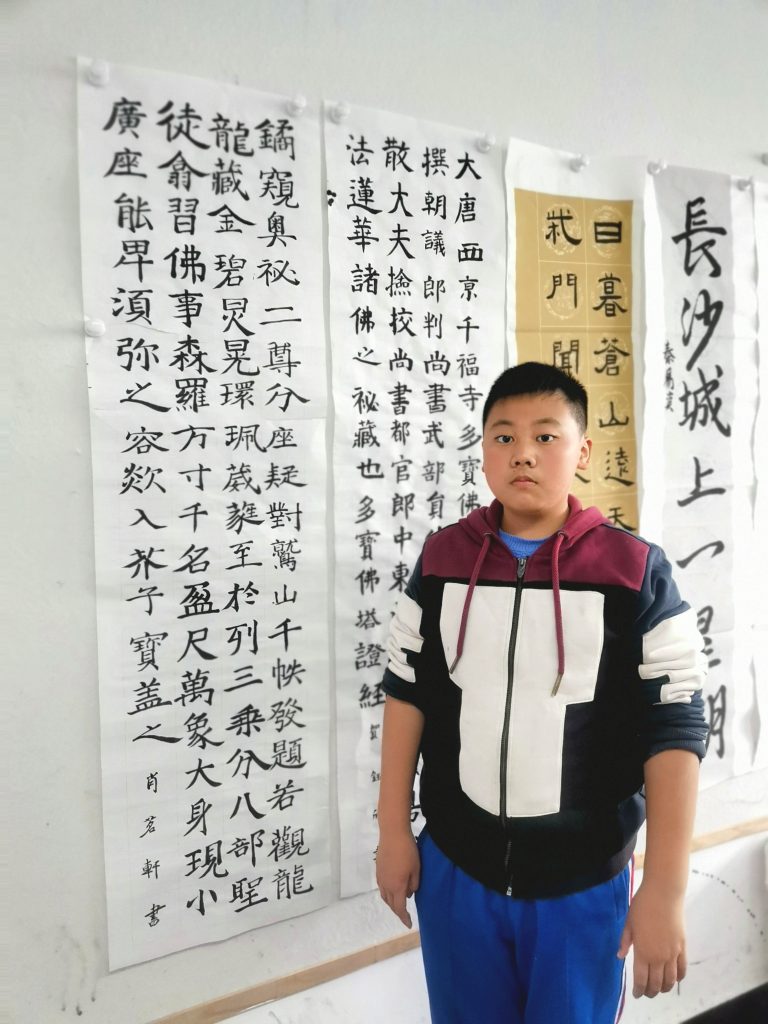 鐍窺奧祕二尊分座疑對鷲山千帙發題若觀龍
龍藏金碧炅晃環珮葳蕤至於列三乘分八部聖
徒翕習佛事森羅方寸千名盈尺萬象大身現小
廣座能卑須弥之容欻入芥子寶盖之
肖茗軒書
大唐西亰千福寺多寶佛
撰朝議郎判尚書武部員
散大夫撿挍尚書都官郎中東
法蓮華諸佛之祕藏也多寶佛塔證經
日暮蒼山遠天
門聞
長沙城上一星明